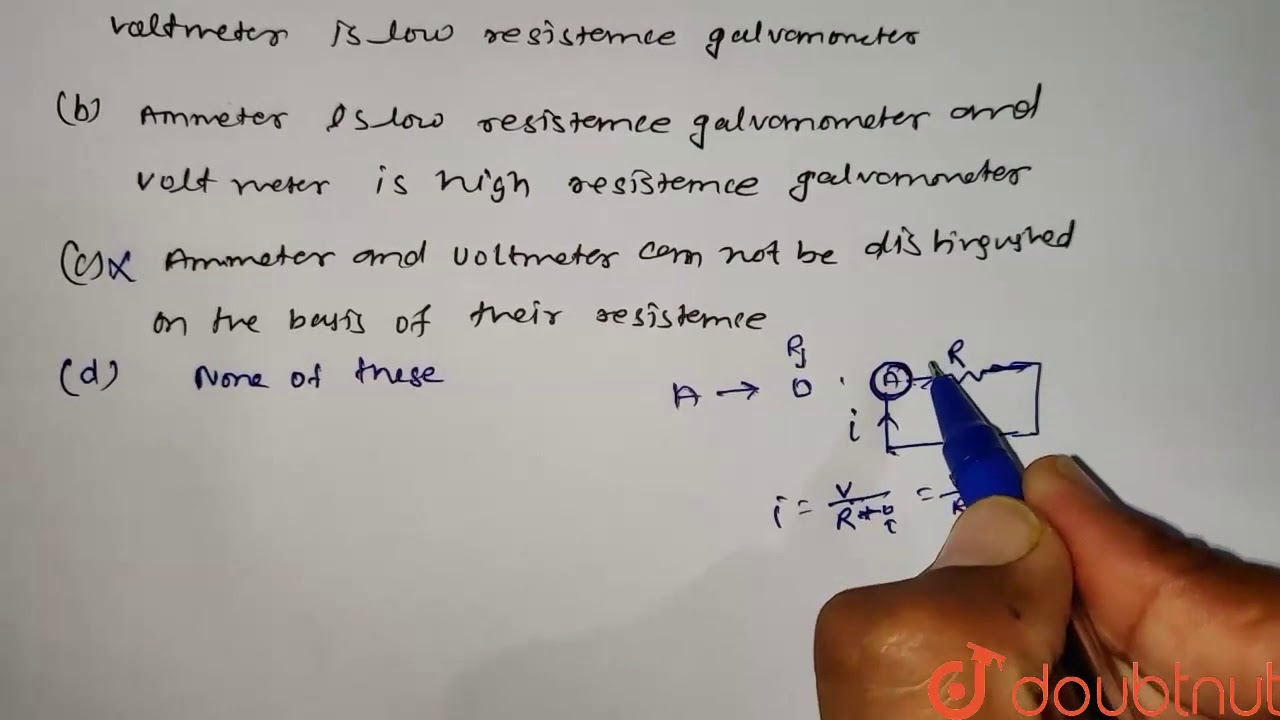 voltmeter is low resistence galvanometer
(b) Ammeter is low resistence galvanometer and
volt meter is high resistence galvanometer
(c)x Ammeter and voltmeter can not be distingushed
on the basis of their resistence
(d) None of these
R
A → 0
A
i
i = V / R + 0 =
doubtnut